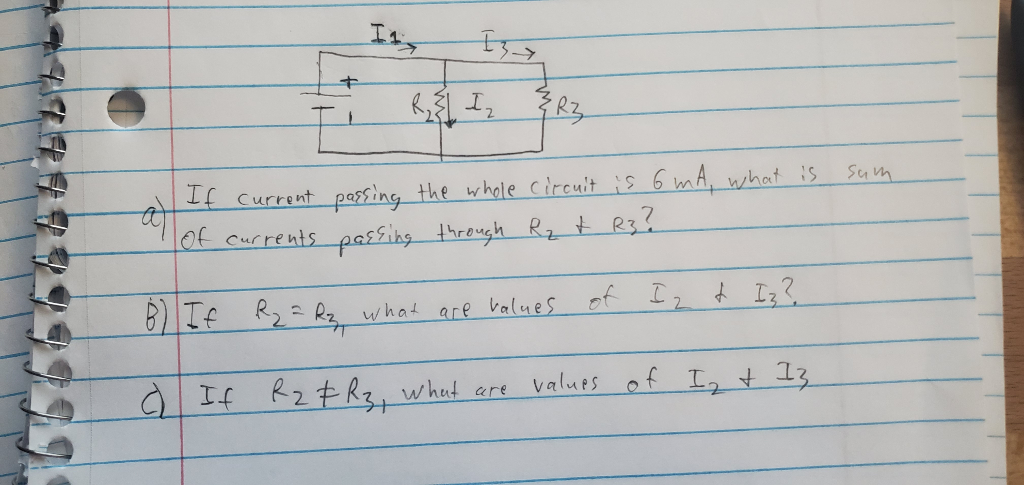 I1 I3
+
R2 I2 R3
a) If current passing the whole circuit is 6 mA, what is sum
of currents passing through R2 & R3?
B) If R2 = R3, what are values of I2 & I3?
C) If R2 ≠ R3, what are values of I2 & I3